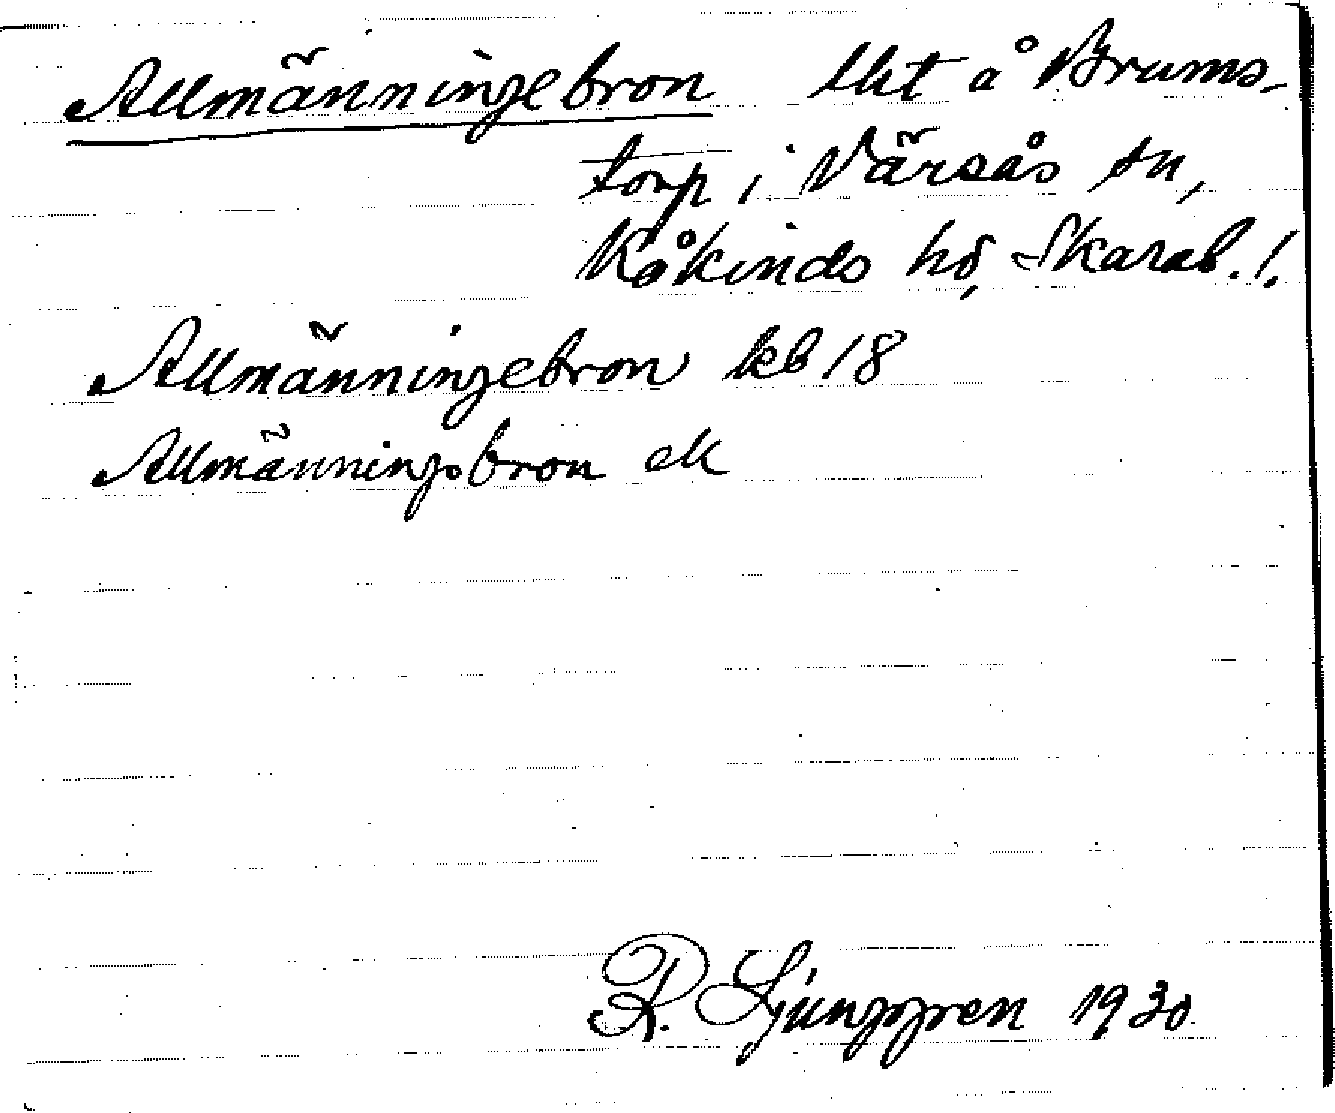 Allmänningebron lht å Brums-
torp i Värsås sn,
Kåkinds hd, Skarab. l.
Allmänningebron kb 18
Allmänningsbron ek
R. Ljunggren 1930